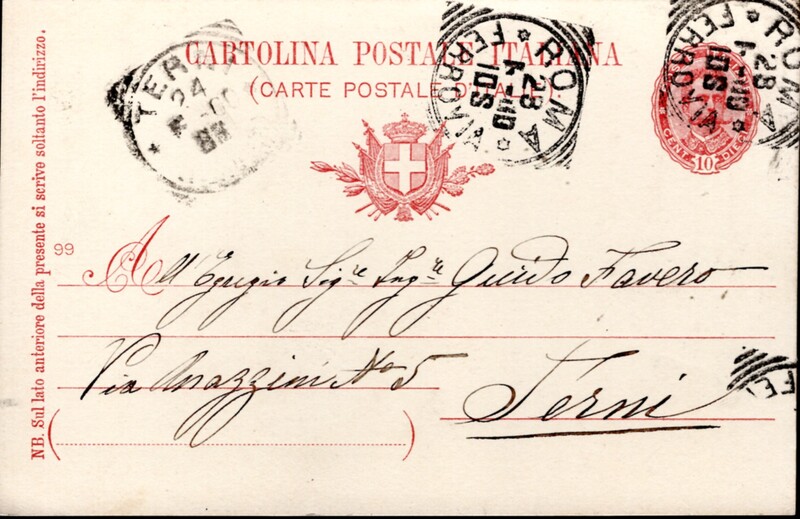 CARTOLINA POSTALE ITALIANA
(CARTE POSTALE D'ITALIE)
NB. Sul lato anteriore della presente si scrive soltanto l'indirizzo.
TERNI
24
ROMA
FERROVIA
28
10S
ROMA
FERROVIA
28
10S
CENT. 10 DIECI
99
All' Egregio Sigre Ingre Guido Favero
Via Mazzini No 5
Terni
FE